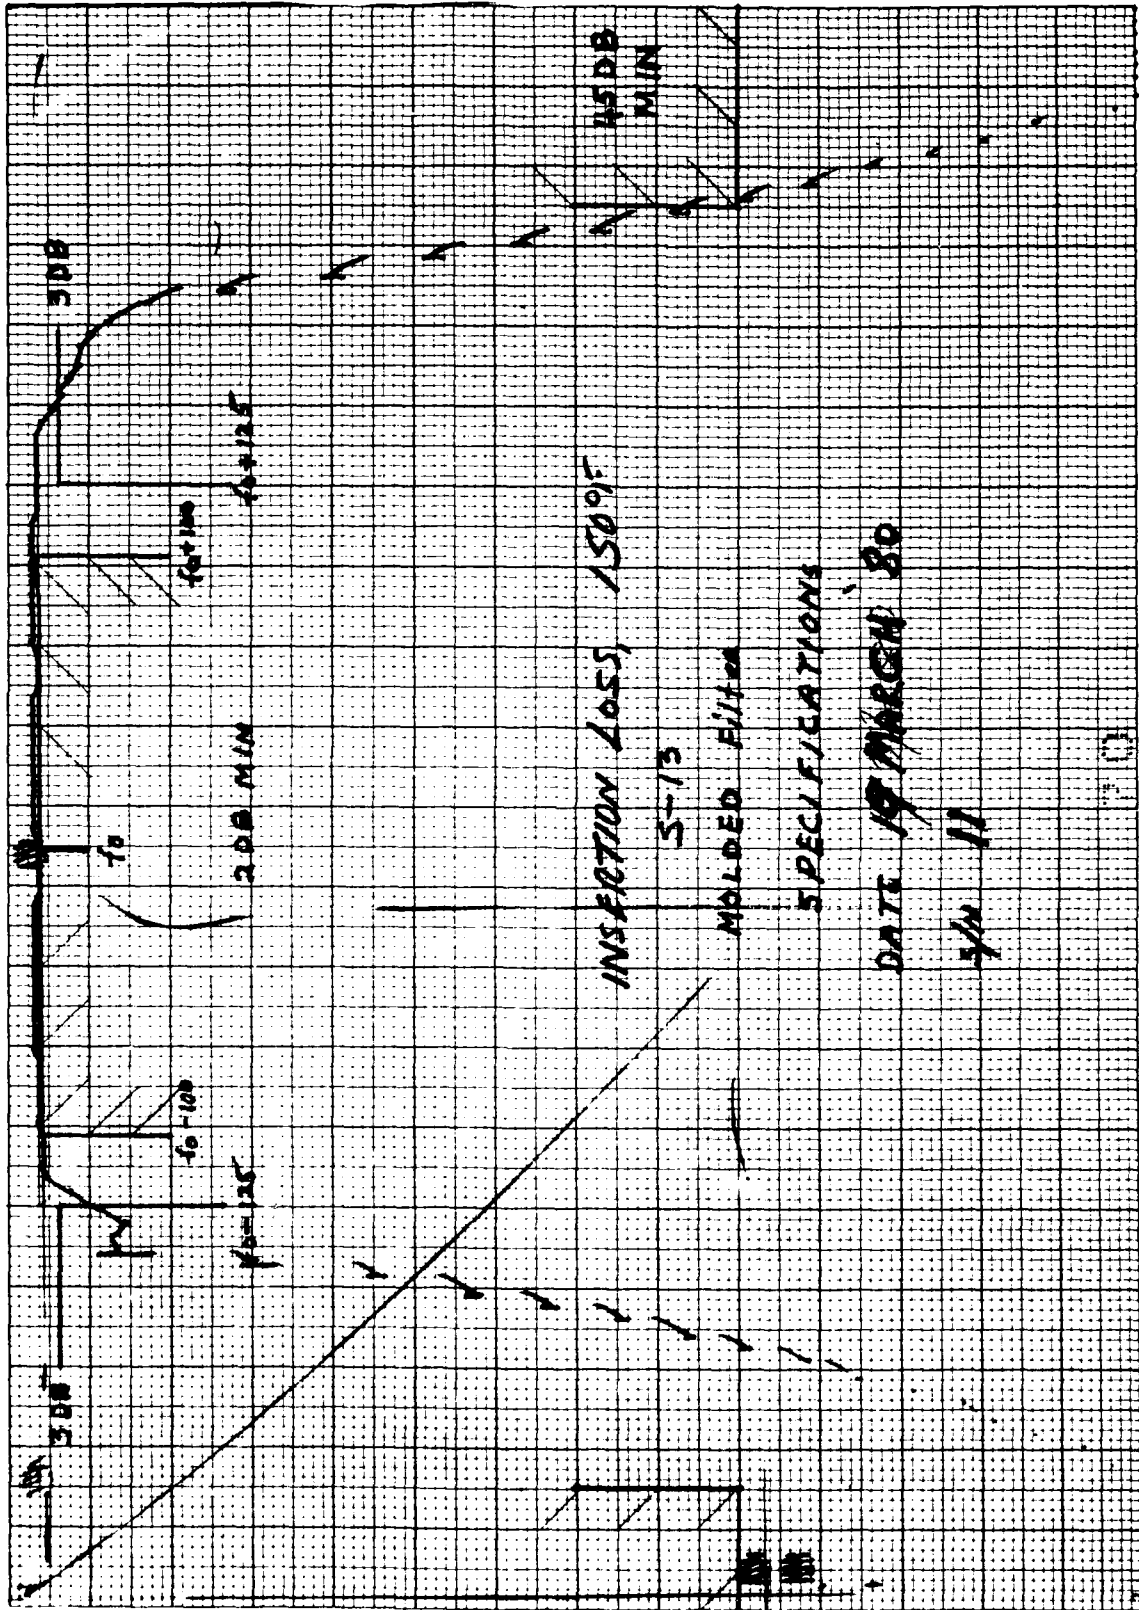 3DB
3DB
45DB
MIN
fo
fo-100
fo+100
fo-125
fo+125
2DB MIN
INSERTION LOSS, 150°F
5-13
MOLDED FilteR
SPECIFICATIONS
DATE 19 MARCH 80
S/N 11